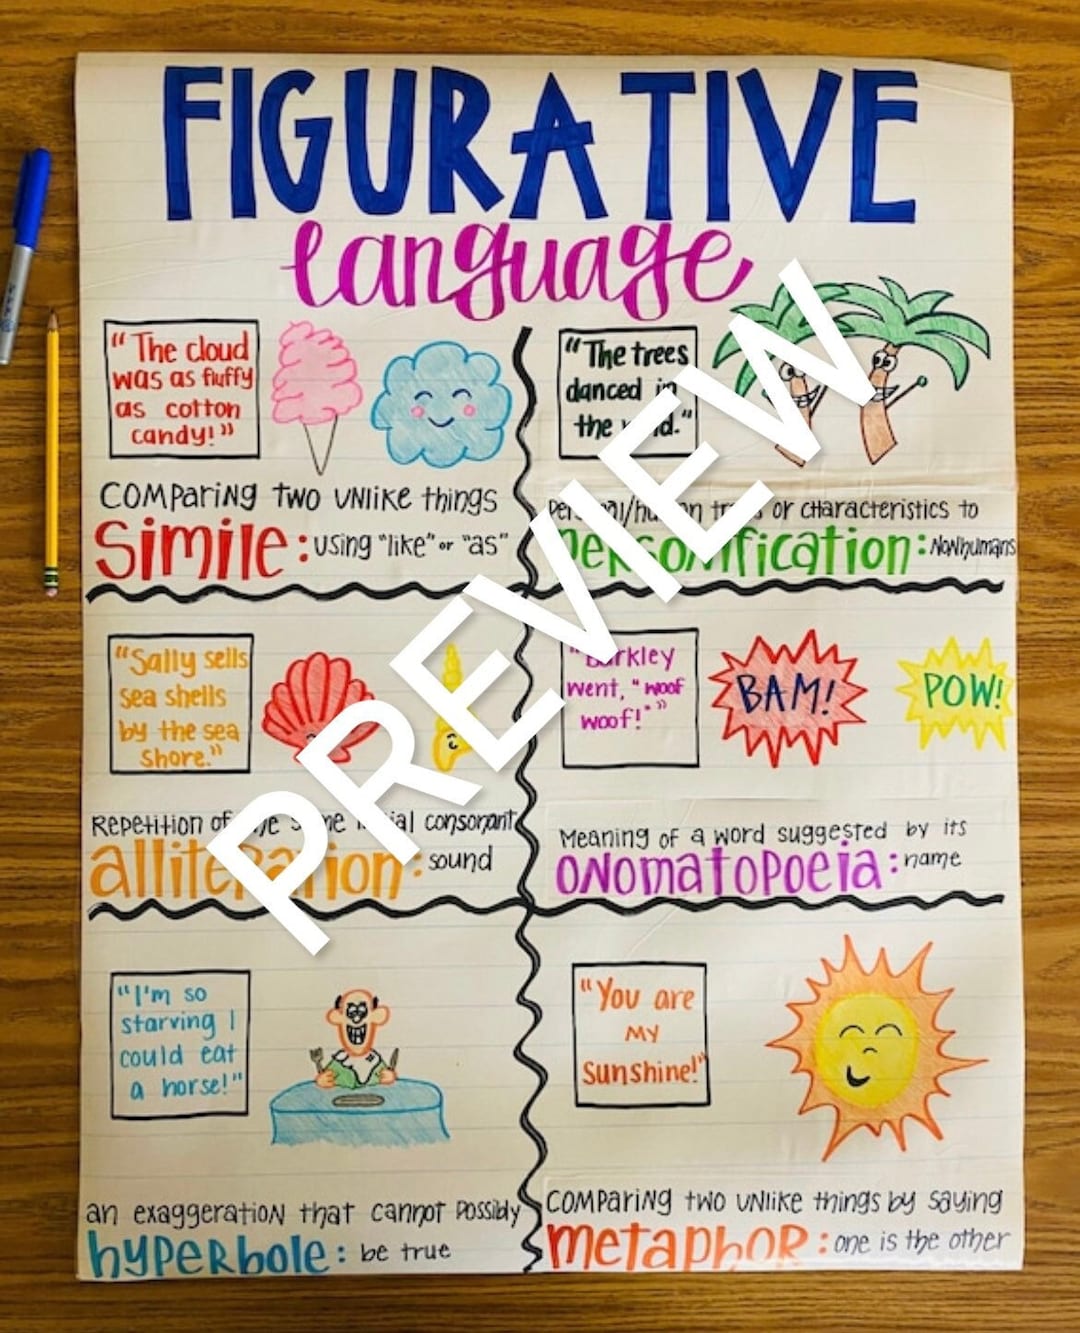 FIGURATIVE
language
"The cloud
was as fluffy
as cotton
candy!"
Comparing two unlike things
Simile: using "like" or "as"
"The trees
danced in
the
or characteristics to
personification: Nonhumans
"Sally sells
sea shells
by the sea
shore."
Repetition of consonant
alliteration: sound
"Barkley
went, "woof
woof!""
BAM!
POW!
Meaning of a word suggested by its
onomatopoeia: name
"I'm so
starving I
could eat
a horse!"
an exaggeration that cannot possibly
hyperbole: be true
"You are
my
Sunshine!"
Comparing two unlike things by saying
metaphor: one is the other
PREVIEW